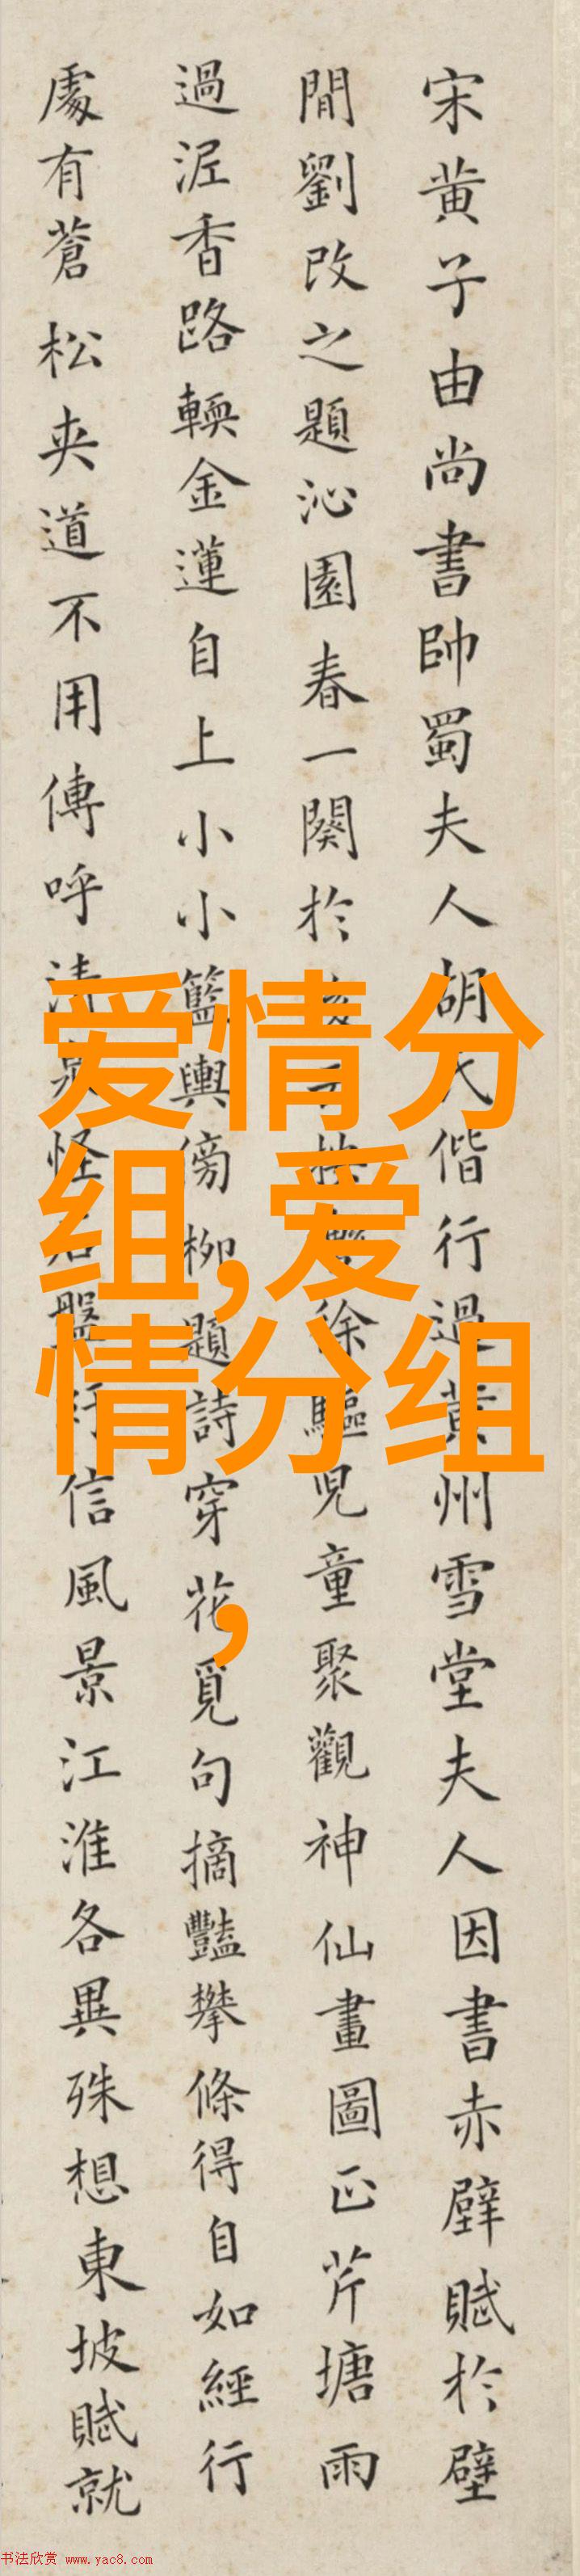 宋黄子由尚書帥蜀夫人胡偕行過黄州雪堂夫人因書赤壁賦於壁
間劉改之題沁園春一闋於按轡徐驅児童聚觀神仙畫圖正芹塘雨
過泥香路輭金蓮自上小小籃輿傍柳題詩穿花覓句摘豔攀條得自如經行
處有蒼松夾道不用傳呼清泉怪石盤紆信風景江淮各異殊想東坡賦就
爱情分
组,爱
情分组
,
书法欣赏 www.yac8.com